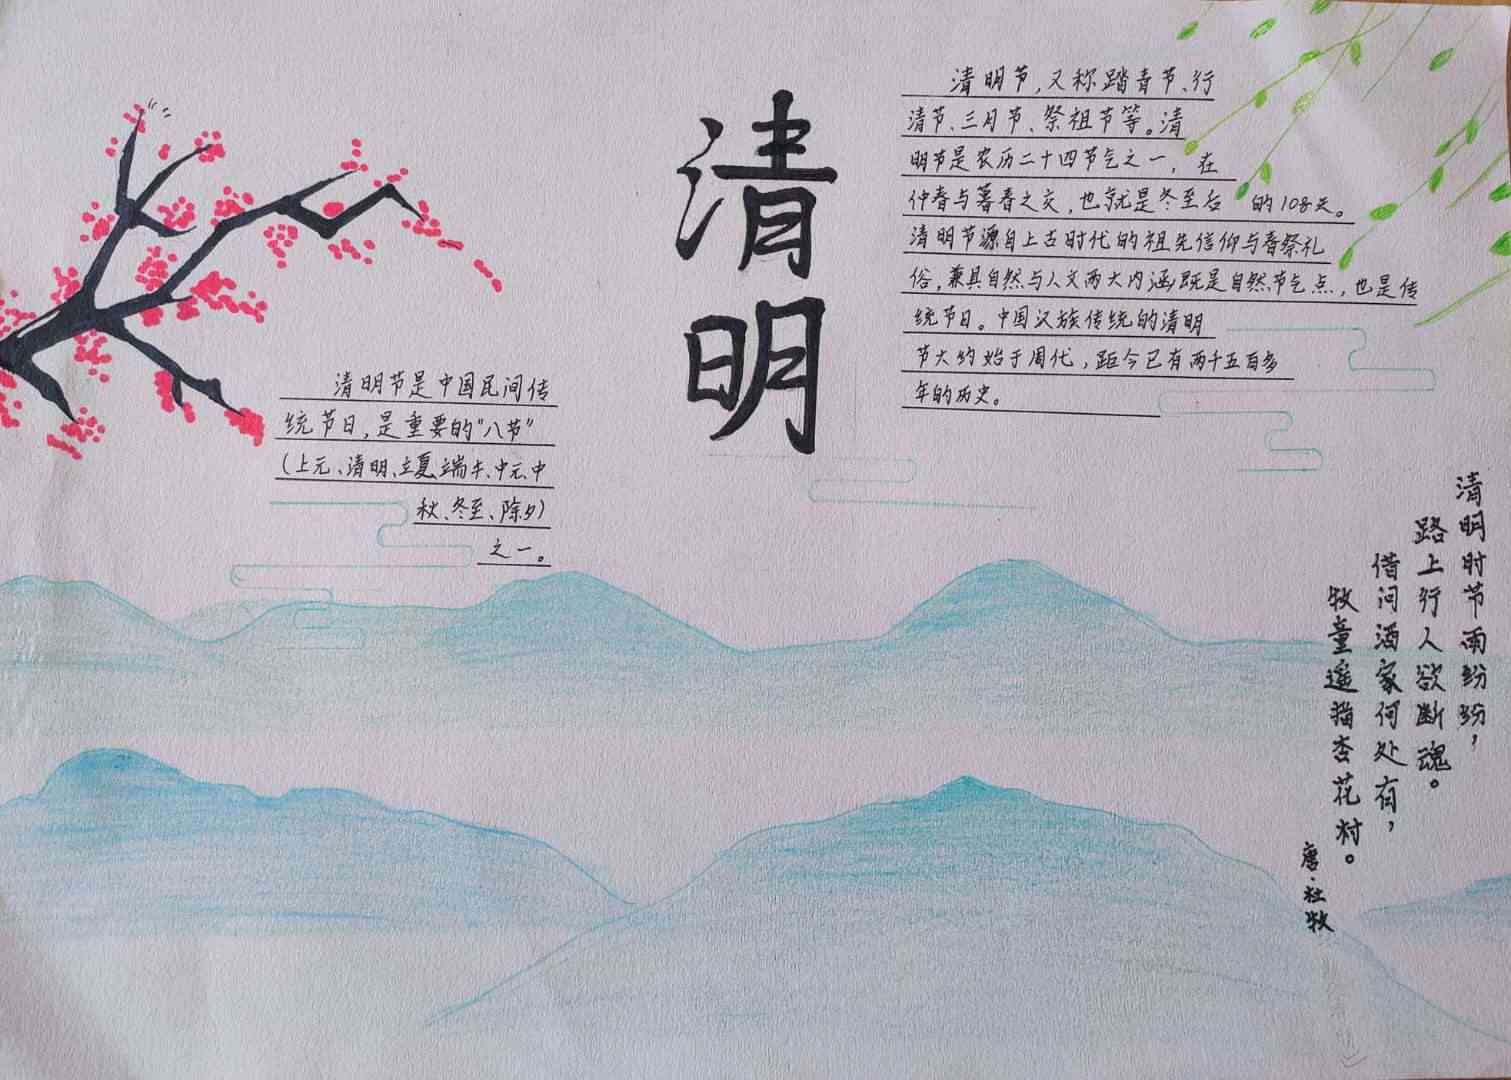 清明
清明节,又称踏青节、行
清节、三月节、祭祖节等。清
明节是农历二十四节气之一，在
仲春与暮春之交,也就是冬至后 的108天。
清明节源自上古时代的祖先信仰与春祭礼
俗,兼具自然与人文两大内涵,既是自然节气点，也是传
统节日。中国汉族传统的清明
节大约始于周代，距今已有两千五百多
年的历史。
清明节是中国民间传
统节日,是重要的“八节”
(上元、清明、立夏、端午、中元、中
秋、冬至、除夕)
之一。
清明时节雨纷纷，
路上行人欲断魂。
借问酒家何处有，
牧童遥指杏花村。
唐·杜牧